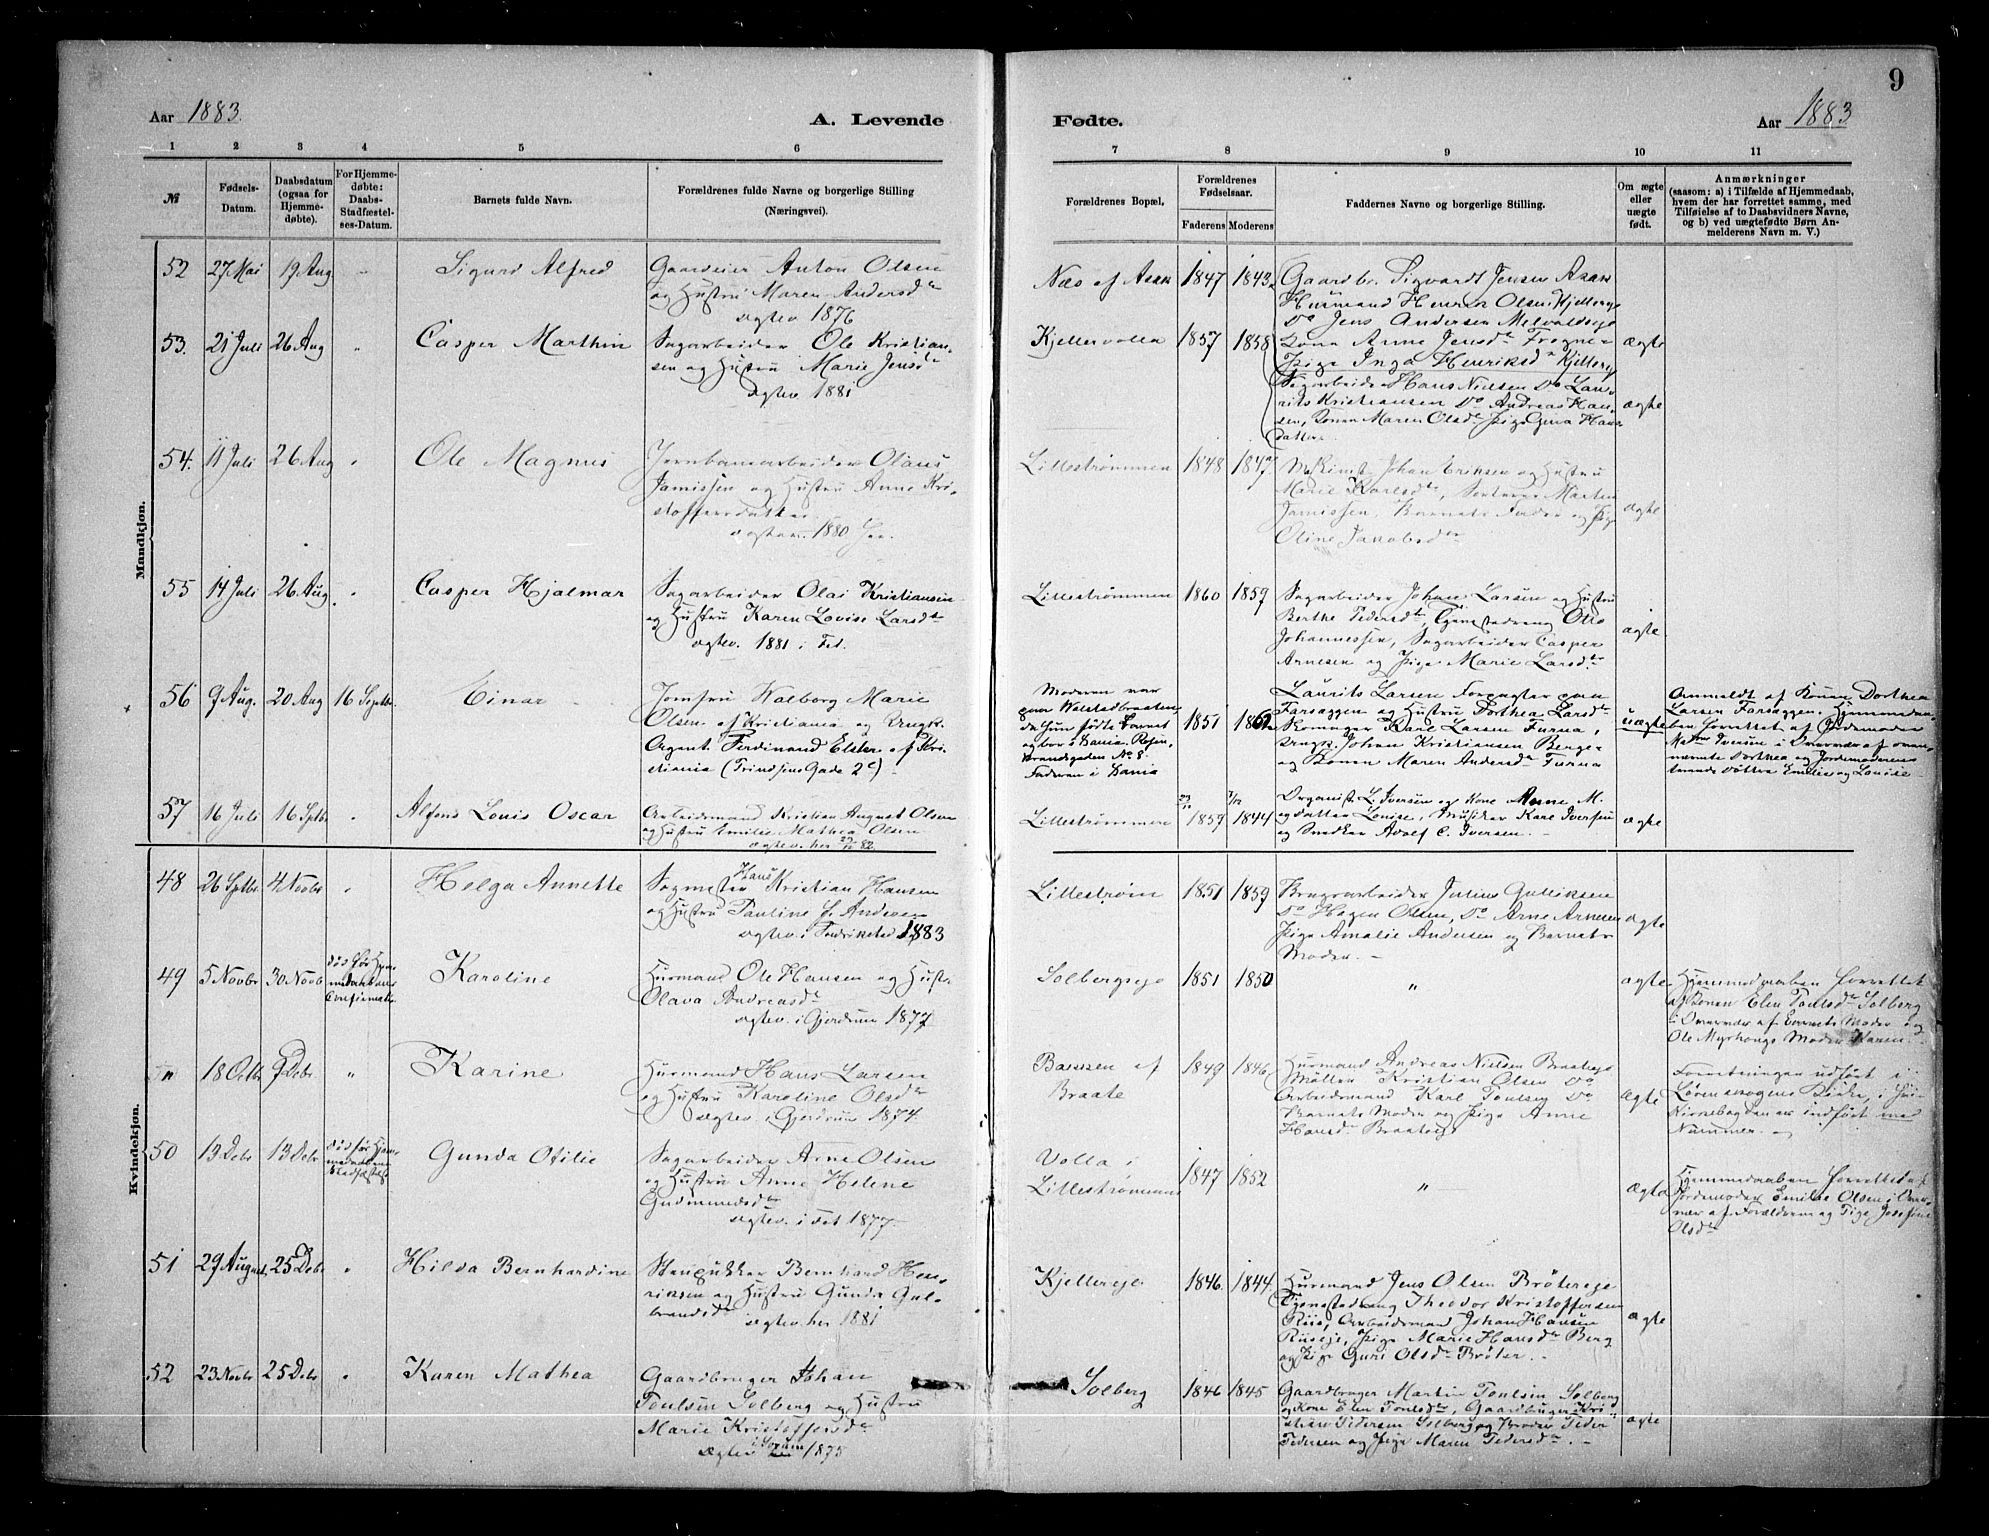 Aar 1883.
A. Levende
Fødte.
Aar 1883
9
1 2 3 4 5 6 7 8 9 10 11
№
Fødsels-
Datum.
Daabsdatum
(ogsaa for
Hjemme-
døbte).
For Hjemme-
døbte:
Daabs-
Stadfæstel-
ses-Datum.
Barnets fulde Navn.
Forældrenes fulde Navne og borgerlige Stilling
(Næringsvei).
Forældrenes Bopæl.
Forældrenes
Fødselsaar.
Faderens Moderens
Faddernes Navne og borgerlige Stilling.
Om ægte
eller
uægte
født.
Anmærkninger
(saasom: a) i Tilfælde af Hjemmedaab,
hvem der har forrettet samme, med
Tilføielse af to Daabsvidners Navne,
og b) ved uægtefødte Børn An-
melderens Navn m. V.)
Mandkjøn.
52 27 Mai 19 Aug " Sigurd Alfred
Gaardeier Anton Olsen
og Hustru Maren Andersdtr
ægtev. 1876
Næs af Asak 1847 1843
Gaardbr. Sigvardt Jensen Asak
Husmand Henrik Olsen Kjellerej
Do Jens Andersen
Kona Anne Jensdtr Frogner
Pige Inga Henriksdtr Kjellerej
ægte
53. 21 Juli 26 Aug " Casper Marthin
Sagarbeider Ole Kristian-
sen og Hustru Marie Jensdtr
ægtev 1881
Kjellervolla 1857 1858
Sagarbeider Hans Nielsen Do Lau-
rits Kristiansen Do Andreas Han-
sen, Konen Maren Olsdtr Pige Gina Hans
datter
ægte
54. 11 Juli 26 Aug " Ole Magnus
Jernbanearbeider Olaus
Jamissen og Hustru Anne Kri-
stoffersdatter
ægtev. 1880
Lillestrømmen 1848 1847
Maskinist Johan Eriksen og Hustru
Marie Karlsdtr, Morten
Jamissen, Barnets Fader og Pige
Oline Jakobsdtr
ægte
55 14 Juli 26 Aug. " Casper Hjalmar
Sagarbeider Olai Kristiansen
og Hustru Karen Lovise Larsdtr
ægtev. 1881 i Fet.
Lillestrømmen 1860 1859
Sagarbeider Johan Larsen og Hustru
Berthe Pedersdtr, Tjenestedreng Otto
Johannessen, Sagarbeider Casper
Arnesen og Pige Marie Larsdtr
ægte.
56 9 Aug. 20 Aug 16 Septbr Einar
Jomfru Walborg Marie
Olsen af Kristiania og
Agent Ferdinand Elster af Kri-
stiania (Trindsens Gade 2c)
Moderen var
paa
da Hun fødte Barnet
og bor i Xania. Rosen-
krandsgaden No 8
Faderen i Xania
1851 1862
Laurits Larsen Forpagter paa
Farseggen og Hustru Dorthea Larsdtr
Karl Larsen Furua,
Johan Kristiansen Berger
og Konen Maren Andersdtr Furua
uægte
Anmeldt af Konen Dorthea
Larsen Farseggen. Hjemmedaa-
ben forrettet af Jordemoder
Mdm Iversen i Overvær af oven-
nævnte Dorthea og Jordemoderens
Døttre Emilie og Louise
57 16 Juli 16 Sptbr " Alfons Louis Oscar
Arbeidsmand Kristian August Olsen
og Hustru Emilie Mathea Olsen
ægtev. her 82
Lillestrømmen 1859 1844
Organist L. Iversen og Kone Anne M.
og Datter Louise, Musiker Karl Iversen
og Snedker Adolf C. Iversen.
ægte
Kvindekjøn.
48 26 Sptbr 4 Novbr " Helga Annette
Sagmester Hans Kristian Hansen
og Hustru Pauline J. Andersen
ægtev. i Fredrikstad 1883
Lillestrøm 1851 1859
Brugsarbeider Julius Gulliksen
Do Hagen Olsen, Do Arne Arnesen
Pige Amalie Andersen og Barnets
Moder.
ægte
49 5 Novbr 30 Novbr Karoline
død før Hjem-
medaabens
Husmand Ole Hansen og Hustr.
Olava Andreasdtr
ægtev. i Gjerdrum 1877
Solbergseje 1851 1850 " ægte
Hjemmedaaben forrettet
af Konen Elen Poulsdtr Solberg
i Overvær af Barnets Moder og
Ole Myrhaugs Moder Karen.
" 18 Octbr 9 Debr " Karine
Husmand Hans Larsen
og Hustru Karoline Olsdtr
ægtev. i Gjerdrum 1874.
Bakken af
Braate
1849 1846
Husmand Andreas Nielsen Braateeje
Møller Kristian Olsen Do
Arbeidsmand Karl Poulsen Do
Barnets Moder og Pige Anne
Hansd. Braateeje
ægte
Forretningen udført i
Lørenskogens Kirke, i
Kirkebog den er indført med
Nummer.
50 13 Debr 13 Debr Gunda Otilie
død før Hjem-
medaabens
Stadfæstelse
Sagarbeider Arne Olsen
og Hustru Anne Helene
Gudmundsdtr
ægtev. i Fet 1877.
Volla i
Lillestrømmen
1847 1852 " ægte
Hjemmedaaben forrettet af
Jordemoder Emilie Olsen i Over-
vær af Forældrene og Pige Josefine
Olsdtr
51 29 August 25 Debr " Hilda Bernhardine
Bernhard Hen-
riksen og Hustru Gunda Gul-
brandsdtr
ægtev. her 1881
Kjellereje 1846 1844
Husmand Jens Olsen Brøtereje
Tjenestedreng Theodor Kristoffersen
Riis, Arbeidsmand Johan Hansen
Riiseje, Pige Marie Hansdtr Berg
og Pige Guri Olsdtr Brøter.
ægte
52 23 Novbr 25 Debr " Karen Mathea
Gaardbruger Johan
Poulsen Solberg og Hustru
Marie Kristoffersdtr
Ægtev i Sørum 1875
Solberg 1846 1845
Gaardbruger Martin Poulsen Solberg
og Kone Elen Poulsdtr, Gaardbruger Kri-
stian Pedersen Solberg og Broder Peder
Pedersen og Pige Maren Pedersdtr.
ægte